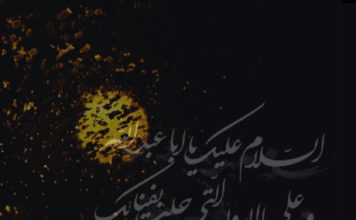 السلام علیک یا ابا عبدالله
و علی الارواح التی حلت بفنائک